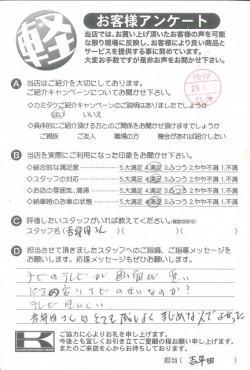 軽
お客様アンケート
当店では、お買い上げ頂いたお客様の声を可能
な限り現場に反映し、お客様により良い商品と
サービスを提供する事に努めています。
大変お手数ですが是非お声をお聞かせ下さい。
A 当店はご紹介を大切にしております。
ご紹介キャンペーンについてお聞かせ下さい。
◇カミタケご紹介キャンペーンのご説明はありましたでしょうか
はい いいえ
◇具体的にご紹介頂ける方との関係をお聞かせ頂けますでしょうか
ご親族 ご友人 職場の方 機会があれば紹介したい
B 当店を実際にご利用になった印象をお聞かせ下さい。
◇総合的な満足度 5.大満足 4.満足 3.ふつう 2.やや不満 1.不満
◇スタッフの対応 5.大満足 4.満足 3.ふつう 2.やや不満 1.不満
◇お店の雰囲気、清掃 5.大満足 4.満足 3.ふつう 2.やや不満 1.不満
◇納車時のお車の状態 5.大満足 4.満足 3.ふつう 2.やや不満 1.不満
C 評価したいスタッフがいれば教えて下さい。(複数回答可)
スタッフ名( )
D 担当させて頂きましたスタッフへのご指摘、ご指導メッセージを
お願いします。応援メッセージもぜひお願いします。
ナビのテレビが画面が悪い
テレビ見にくい
K
ご協力に心よりお礼を申し上げます。
今後とも宜しくお引き立てご愛顧の程お願い申し上げます。
またのご来店を心からお待ちしております。
担当( )